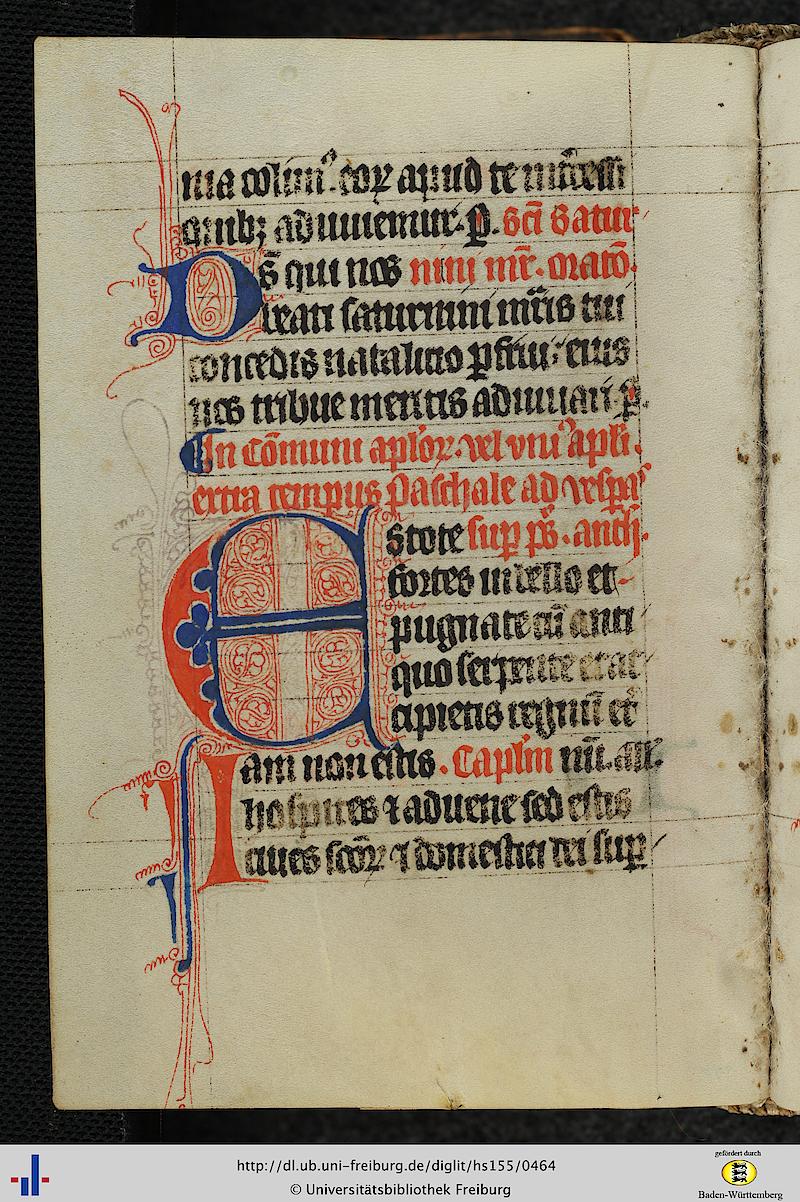 nia colimꝰ. eoꝝ apud te int̄cessi
onibꝫ adiuuemur. P̲. Sc̄i Satur
Ds̄ qui nos nini mr̄. oratō.
beati saturnini mr̄is tui
concedis natalicio ꝑfrui. eius
nos tribue meritis adiuuari. ꝑ.
In cōmuni aplōꝝ. vel vniꝰ apl̄i.
extra tempus Paschale ad vesꝑas
Estote suꝑ ps̄. anth.
fortes in bello et
pugnate cū anti
quo serpente et ac
cipietis regnū et̓
Iam non estis. Capl̄m nū. all̄.
hospites ⁊ aduene sed estis
ciues sc̄oꝝ ⁊ domestici dei suꝑ
http://dl.ub.uni-freiburg.de/diglit/hs155/0464
© Universitätsbibliothek Freiburg
gefördert durch
Baden-Württemberg